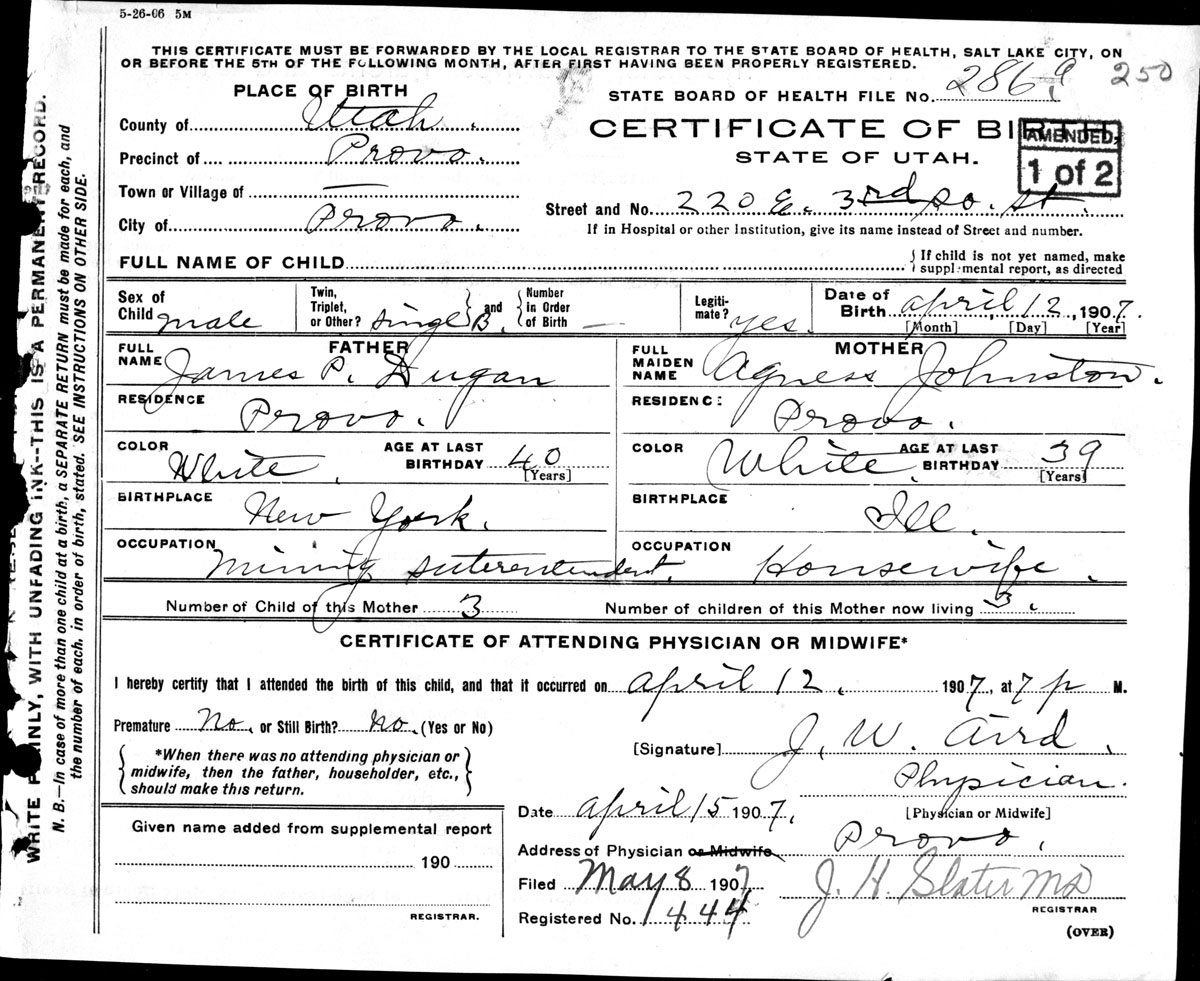 5-26-06 5M
THIS CERTIFICATE MUST BE FORWARDED BY THE LOCAL REGISTRAR TO THE STATE BOARD OF HEALTH, SALT LAKE CITY, ON
OR BEFORE THE 5TH OF THE FOLLOWING MONTH, AFTER FIRST HAVING BEEN PROPERLY REGISTERED.
250
PLACE OF BIRTH
STATE BOARD OF HEALTH FILE No. 2869
County of Utah.
CERTIFICATE OF BIRTH.
AMENDED
1 of 2
Precinct of Provo.
STATE OF UTAH.
Town or Village of —
Street and No. 220 E. 3rd so. st.
City of Provo.
If in Hospital or other Institution, give its name instead of Street and number.
FULL NAME OF CHILD
{ If child is not yet named, make
supplemental report, as directed
Sex of Child male
Twin, Triplet, or Other? Single B. } and { Number in Order of Birth —
Legitimate? yes.
Date of Birth april, 12, 1907.
[Month] [Day] [Year]
FATHER
FULL NAME James P. Dugan
MOTHER
FULL MAIDEN NAME Agness Johnston.
RESIDENCE Provo.
RESIDENCE Provo.
COLOR White. AGE AT LAST BIRTHDAY 40 [Years]
COLOR White. AGE AT LAST BIRTHDAY 39 [Years]
BIRTHPLACE New York.
BIRTHPLACE Ill.
OCCUPATION Mining suterentendent.
OCCUPATION Housewife.
Number of Child of this Mother 3 Number of children of this Mother now living 3.
CERTIFICATE OF ATTENDING PHYSICIAN OR MIDWIFE*
I hereby certify that I attended the birth of this child, and that it occurred on april 12, 1907, at 7 p M.
Premature No. or Still Birth? No. (Yes or No)
[Signature] J. W. Aird.
{ *When there was no attending physician or
midwife, then the father, householder, etc.,
should make this return. }
Physician.
[Physician or Midwife]
Date april 15 1907.
Given name added from supplemental report
Address of Physician or Midwife Provo.
190
Filed May 8 1907 J. H. Slater MD
REGISTRAR
Registered No. 1444
REGISTRAR.
(OVER)
WRITE PLAINLY, WITH UNFADING INK--THIS IS A PERMANENT RECORD.
N. B.—In case of more than one child at a birth, a SEPARATE RETURN must be made for each, and
the number of each, in order of birth, stated. SEE INSTRUCTIONS ON OTHER SIDE.